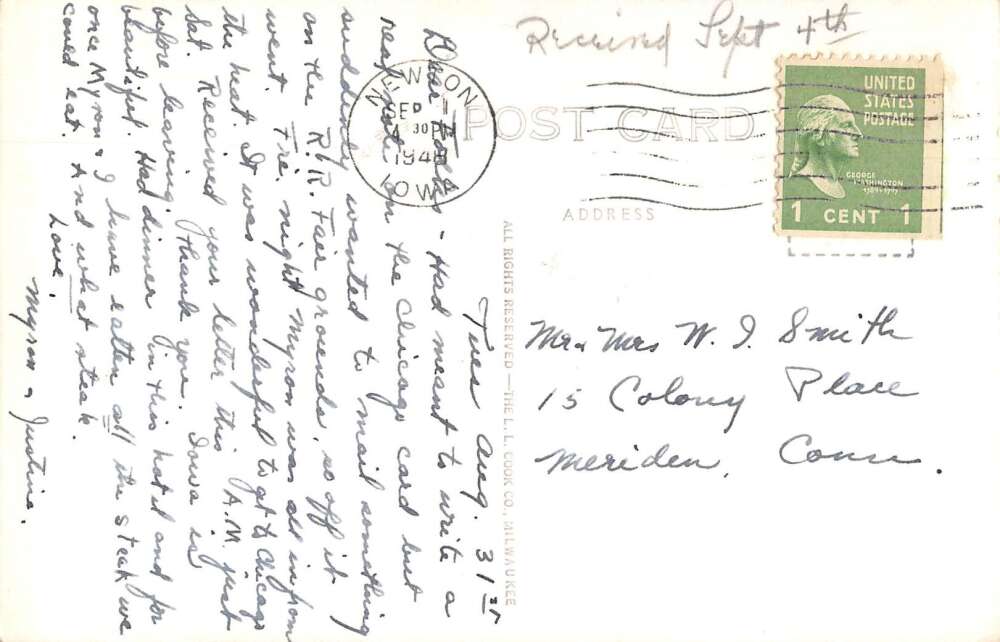 Received Sept 4th
POST CARD
NEWTON
SEP
4 30 P
1948
IOWA
UNITED
STATES
POSTAGE
GEORGE
WASHINGTON
1789-1797
1 CENT 1
ADDRESS
Mr & Mrs W. I. Smith
15 Colony Place
Meriden, Conn.
ALL RIGHTS RESERVED — THE L. L. COOK CO., MILWAUKEE
Tues Aug. 31st
Dear Folks - Had meant to write a
real note on the Chicago card but
suddenly wanted to mail something
on the R/R. Fair grounds, so off it
went. Fri. night Myron was all in from
the heat. It was wonderful to get to Chicago
Sat. Received your letter this A.M. just
before leaving. Thank you. Iowa is
beautiful. Had dinner in this hotel and for
once Myron & I have eaten all the steak we
could eat. And what steak.
Love,
Myron & Justine.